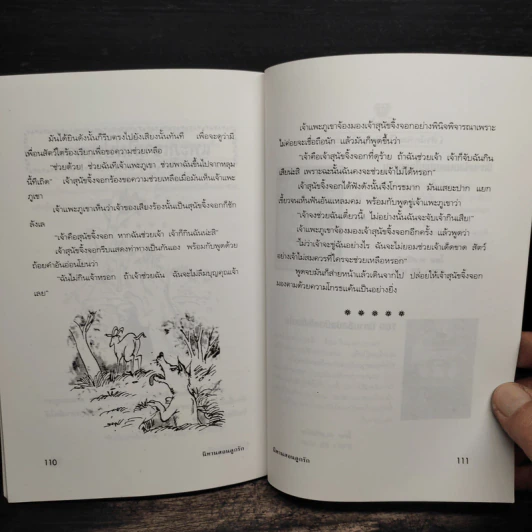 มันได้ยินดังนั้นก็รีบตรงไปยังเสียงนั้นทันที เพื่อจะดูว่ามี
เพื่อนสัตว์ใดร้องเรียกเพื่อขอความช่วยเหลือ
"ช่วยด้วย! ช่วยฉันทีเจ้าแพะภูเขา ช่วยพาฉันขึ้นไปจากหลุม
นี้ทีเถิด" เจ้าสุนัขจิ้งจอกร้องขอความช่วยเหลือเมื่อมันเห็นเจ้าแพะ
ภูเขา
เจ้าแพะภูเขาเห็นว่าเจ้าของเสียงร้องนั้นเป็นสุนัขจิ้งจอกก็ชัก
ลังเล
"เจ้าคือสุนัขจิ้งจอก หากฉันช่วยเจ้า เจ้าก็กินฉันน่ะสิ"
เจ้าสุนัขจิ้งจอกรีบแสดงท่าทางเป็นกันเอง พร้อมกับพูดด้วย
ถ้อยคำอันอ่อนโยนว่า
"ฉันไม่กินเจ้าหรอก ถ้าเจ้าช่วยฉัน ฉันจะไม่ลืมบุญคุณเจ้า
เลย"
110
นิทานสอนลูกรัก
เจ้าแพะภูเขาจ้องมองเจ้าสุนัขจิ้งจอกอย่างพินิจพิจารณาเพราะ
ไม่ค่อยจะเชื่อถือนัก แล้วมันก็พูดขึ้นว่า
"เจ้าคือเจ้าสุนัขจิ้งจอกที่ดุร้าย ถ้าฉันช่วยเจ้า เจ้าก็จับฉันกิน
เสียน่ะสิ เพราะฉะนั้นฉันคงจะช่วยเจ้าไม่ได้หรอก"
เจ้าสุนัขจิ้งจอกได้ฟังดังนั้นจึงโกรธมาก มันแสยะปาก แยก
เขี้ยวจนเห็นฟันอันแหลมคม พร้อมกับพูดขู่เจ้าแพะภูเขาว่า
"เจ้าจงช่วยฉันเดี๋ยวนี้! ไม่อย่างนั้นฉันจะจับเจ้ากินเสีย!"
เจ้าแพะภูเขาจ้องมองเจ้าสุนัขจิ้งจอกอีกครั้ง แล้วพูดว่า
"ไม่ว่าเจ้าจะขู่ฉันอย่างไร ฉันจะไม่ยอมช่วยเจ้าเด็ดขาด สัตว์
อย่างเจ้าไม่สมควรที่ใครจะช่วยเหลือหรอก"
พูดจบมันก็ส่ายหน้าแล้วเดินจากไป ปล่อยให้เจ้าสุนัขจิ้งจอก
มองตามด้วยความโกรธแค้นเป็นอย่างยิ่ง
นิทานสอนลูกรัก
111